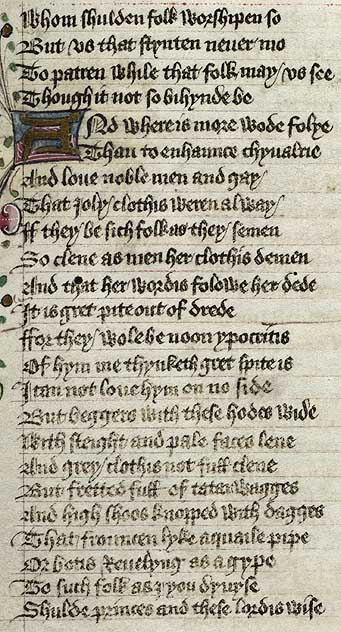 Whom shulden folk worshipen so
But vs that stynten neuer mo
To patren while that folk may vs see
Though it not so bihynde be
And where is more wode folye
Than to enhaunce chyualrie
And loue noble men and gay
That Joly clothis weren alway
If they be sich folk as they semen
So clene as men her clothis demen
And that her wordis folowe her dede
It is gret pite out of drede
ffor they wole be noon ypocritis
Of hym me thynketh gret spite is
I can not loue hym on no side
But beggers with these hodes wide
With sleight and pale faces lene
And grey clothis not full clene
But fretted full of tatarwagges
And high shoos knopped with dagges
That frouncen lyke a quaile pipe
Or botis reuelyng as a gype
To such folk as I you dyuyse
Shulde princes and these lordis wise